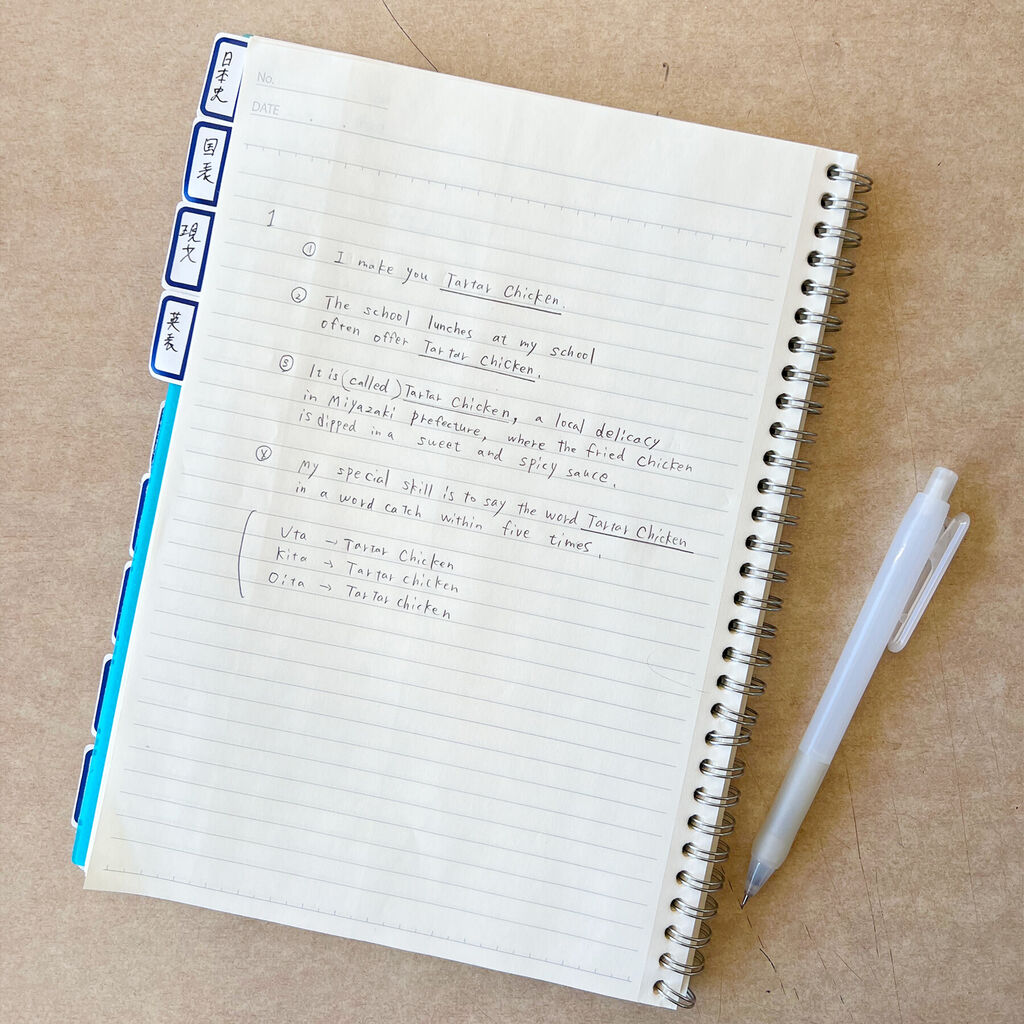 No.
DATE
日本史
国表
現文
英表
1
① I make you Tartar Chicken.
② The school lunches at my school
often offer Tartar chicken.
③ It is (called) Tartar Chicken, a local delicacy
in Miyazaki prefecture, where the fried chicken
is dipped in a sweet and spicy sauce.
④ My special skill is to say the word Tartar Chicken
in a word catch within five times.
Uta → Tartar Chicken
Kita → Tartar chicken
Oita → Tartar chicken